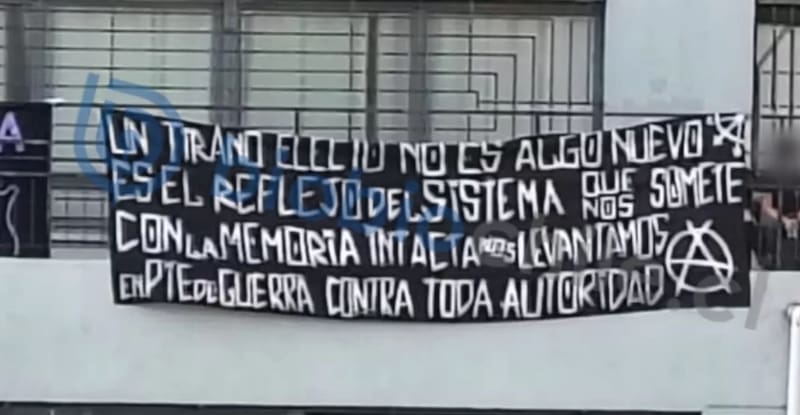 UN TIRANO ELECTO NO ES ALGO NUEVO
ES EL REFLEJO DEL SISTEMA QUE NOS SOMETE
CON LA MEMORIA INTACTA NOS LEVANTAMOS
EN PIE DE GUERRA CONTRA TODA AUTORIDAD
A